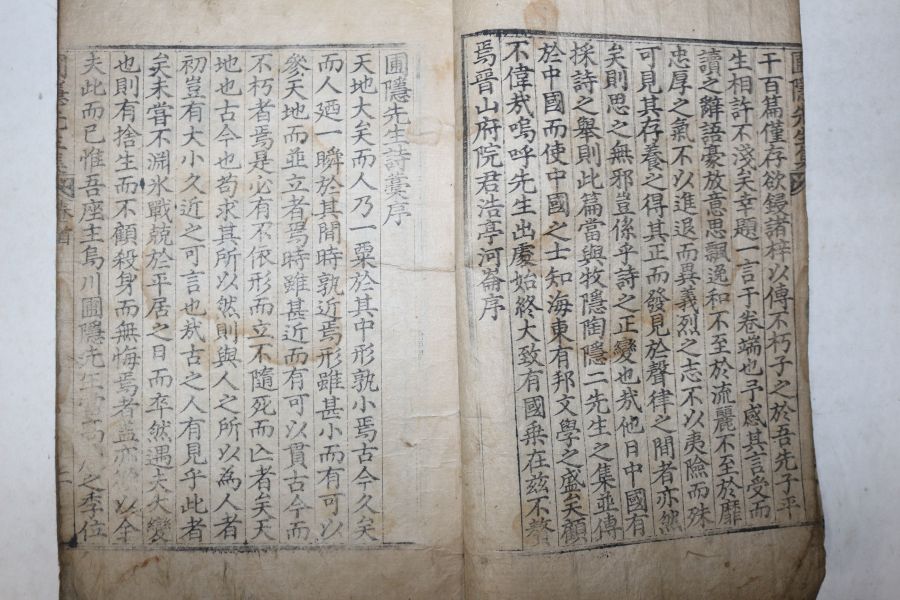 千百篇僅存欲鋟諸梓以傳不朽子之於吾先子平
生相許不淺矣幸題一言于卷端也予感其言受而
讀之辭語豪放意思飄逸和不至於流麗不至於靡
忠厚之氣不以進退而異義烈之志不以夷險而殊
可見其存養之得其正而發見於聲律之間者亦然
矣則思之無邪豈係乎詩之正變也哉他日中國有
採詩之舉則此篇當與牧隱陶隱二先生之集並傳
於中國而使中國之士知海東有邦文學之盛矣顧
不偉哉嗚呼先生出處始終大致有國乘在玆不贅
焉晉山府院君浩亭河崙序
圃隱先生詩藁序
天地大矣而人乃一粟於其中形孰小焉古今久矣
而人廼一瞬於其間時孰近焉形雖甚小而有可以
參天地而並立者焉時雖甚近而有可以貫古今而
不朽者焉是必有不依形而立不隨死而亡者矣天
地也古今也苟求其所以然則與人之所以為人者
初豈有大小久近之可言也哉古之人有見乎此者
矣未嘗不淵氷戰兢於平居之日而卒然遇夫大變
也則有捨生而不顧殺身而無悔焉者盖亦以全
夫此而已惟吾座主烏川圃隱先生之季位